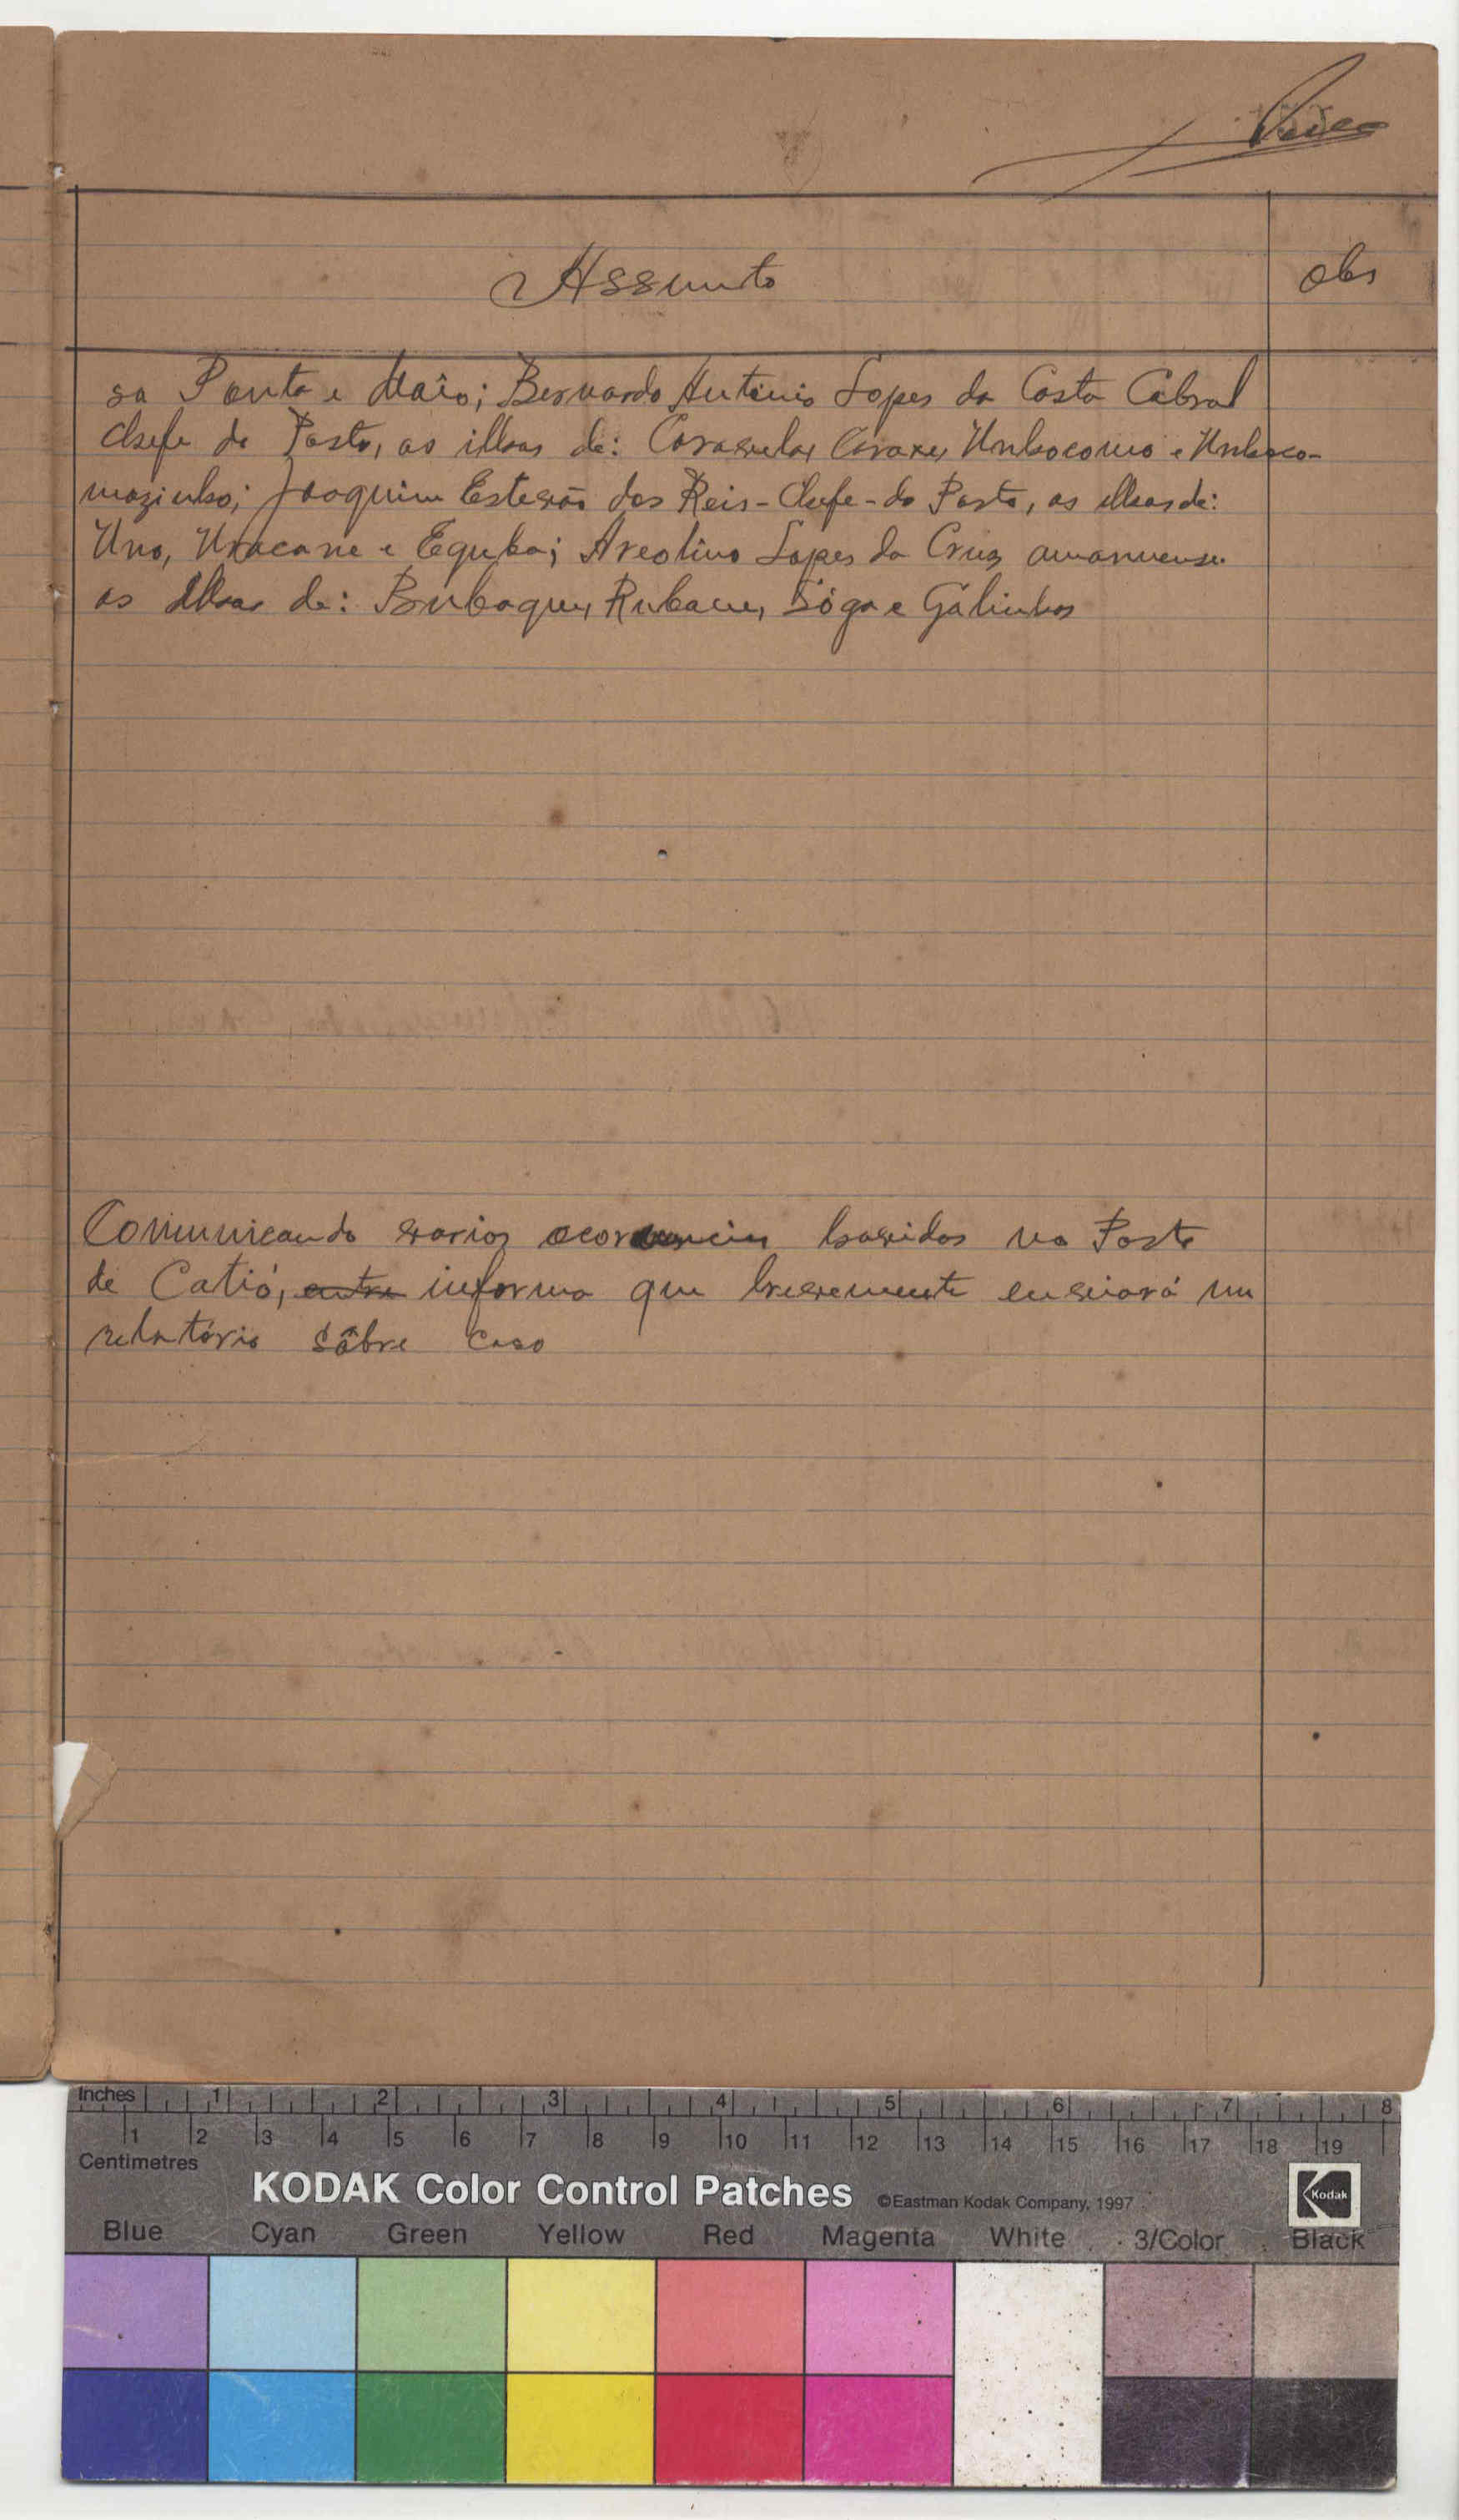 Assunto
obs
sa Ponta e Maio; Bernardo António Lopes da Costa Cabral
Chefe de Posto, as ilhas de: Caravela, Caraxe, Unhocomo e Unhoco-
mozinho; Joaquim Estevão dos Reis - Chefe - do Posto, as ilhas de:
Uno, Uracane e Eguba; Aveolino Lopes da Cruz amanuense
as Ilhas de: Bubaque, Rubane, Sóga e Galinhas
Comunicando varios havidas no Posto
de Catió, entre informa que brevemente enviará um
relatório sôbre caso
Inches 1 2 3 4 5 6 7 8
1 2 3 4 5 6 7 8 9 10 11 12 13 14 15 16 17 18 19
Centimetres
KODAK Color Control Patches ©Eastman Kodak Company, 1997 Kodak
Blue Cyan Green Yellow Red Magenta White 3/Color Black